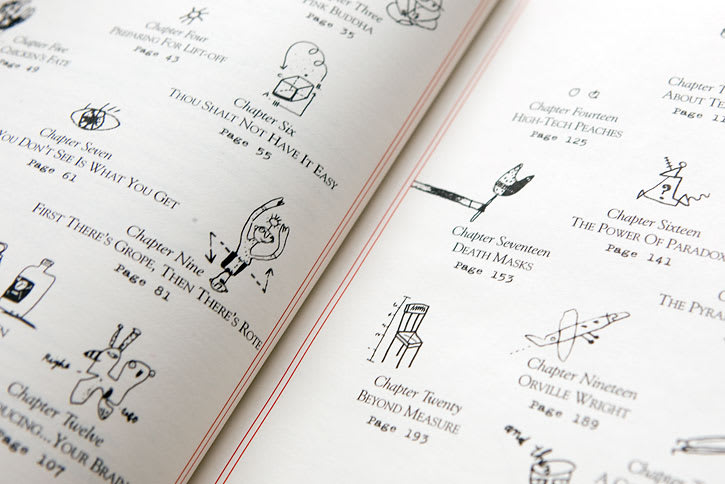 Chapter Three
PINK BUDDHA
Page 35
Chapter Four
PREPARING FOR LIFT-OFF
Page 43
Chapter Five
CHICKEN'S FATE
Page 49
Chapter Six
THOU SHALT NOT HAVE IT EASY
Page 55
Chapter Seven
YOU DON'T SEE IS WHAT YOU GET
Page 61
Chapter Nine
FIRST THERE'S GROPE, THEN THERE'S ROTE
Page 81
Right
Chapter Twelve
YOUR BRAIN
Page 107
Chapter
ABOUT
Chapter Fourteen
HIGH-TECH PEACHES
Page 125
?
Chapter Sixteen
THE POWER OF PARADOX
Page 141
Chapter Seventeen
DEATH MASKS
Page 153
THE
Chapter Nineteen
ORVILLE WRIGHT
Page 189
Chapter Twenty
BEYOND MEASURE
Page 193
Chapter